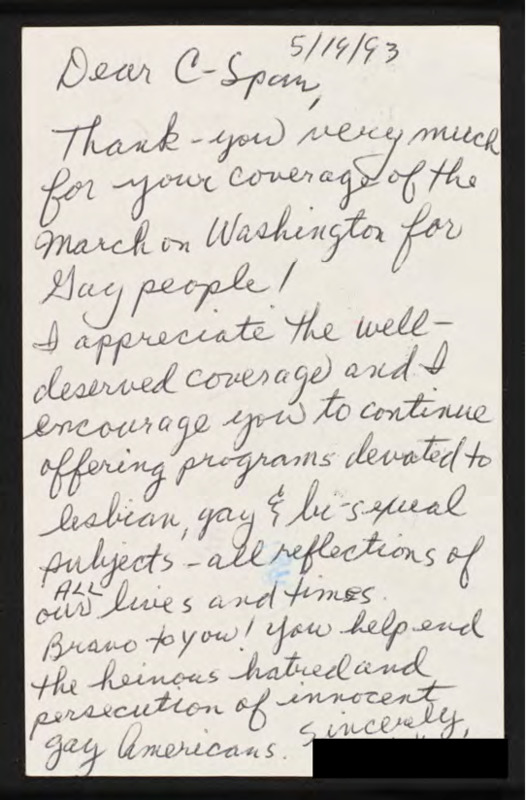 5/19/93
Dear C-Span,
Thank-you very much
for your coverage of the
March on Washington for
Gay people!
I appreciate the well-
deserved coverage and I
encourage you to continue
offering programs devoted to
lesbian, gay & bi-sexual
subjects - all reflections of
ALL
our lives and times.
Bravo to you! You help end
the heinous hatred and
persecution of innocent
gay Americans. Sincerely,